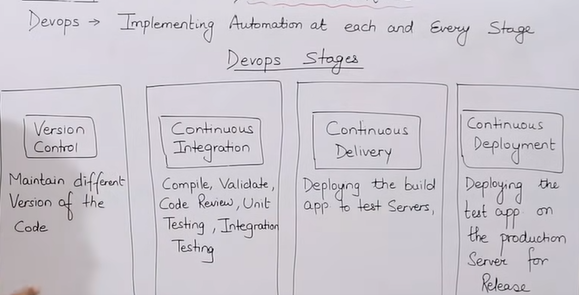 Devops → Implementing Automation at each and Every Stage
Devops Stages
Version
Control
Maintain different
Version of the
Code
Continuous
Integration
Compile, Validate,
Code Review, Unit
Testing, Integration
Testing
Continuous
Delivery
Deploying the build
app to test Servers,
Continuous
Deployment
Deploying the
test app on
the production
Server for
Release